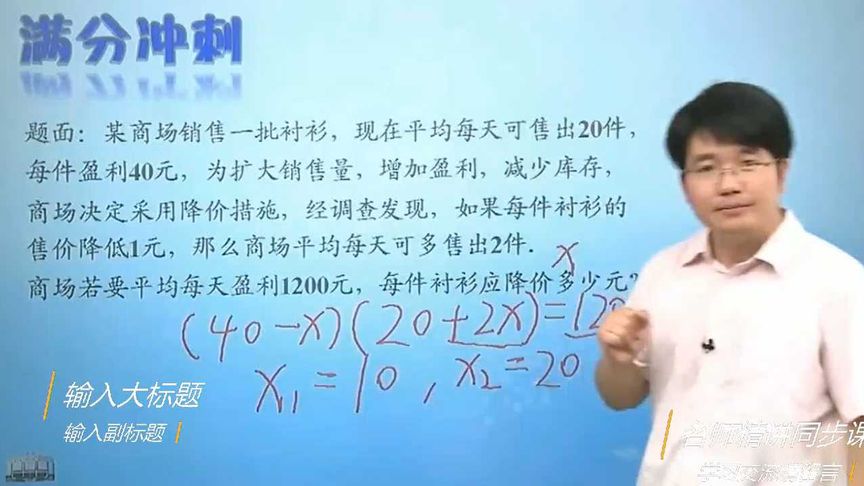 满分冲刺
题面：某商场销售一批衬衫，现在平均每天可售出20件，
每件盈利40元，为扩大销售量，增加盈利，减少库存，
商场决定采用降价措施，经调查发现，如果每件衬衫的
售价降低1元，那么商场平均每天可多售出2件．
x
商场若要平均每天盈利1200元，每件衬衫应降价多少元？
(40-x)(20+2x)=120
x₁=10，x₂=20
输入大标题
输入副标题
名师精讲同步课
学 交流 言